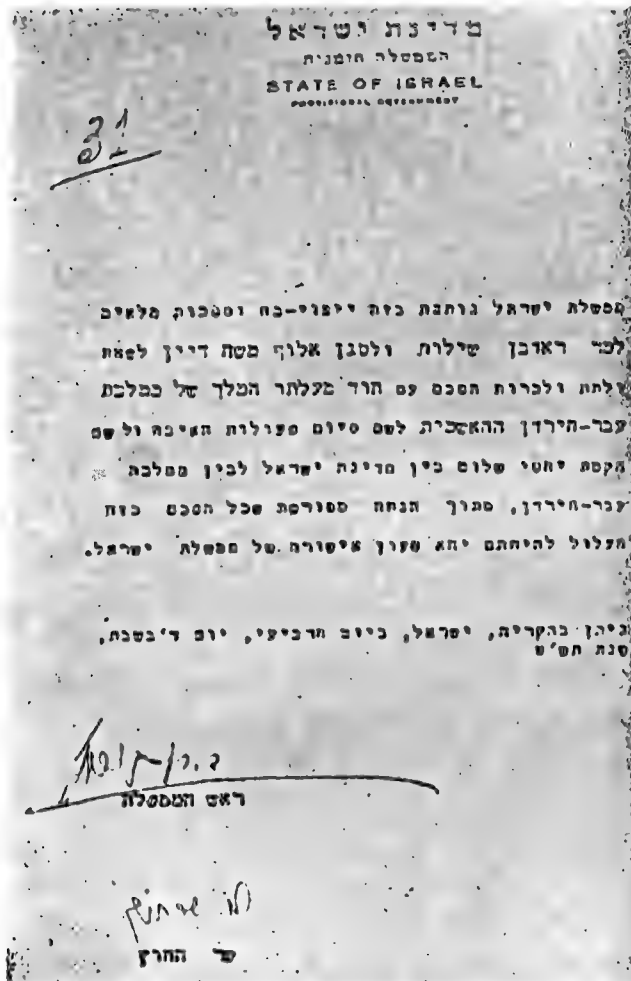 מדינת ישראל
הממשלה הזמנית
STATE OF ISRAEL
PROVISIONAL GOVERNMENT
31
ממשלת ישראל נותנת בזה ייפוי-כח וסמכות מלאים
למר ראובן שילוח ולסגן אלוף משה דיין לשאת
ולתת ולכרות הסכם עם הוד מעלתו המלך של ממלכת
עבר-הירדן ההאשמית לשם סיום פעולות האיבה ולשם
הקמת יחסי שלום בין מדינת ישראל לבין ממלכת
עבר-הירדן, מתוך הנחה מפורשת שכל הסכם כזה
העלול להיחתם יהא טעון אישורה של ממשלת ישראל.
ניתן בהקריה, ישראל, ביום הרביעי, יום ד' בטבת,
שנת תש"ט
ד. בן-גוריון
ראש הממשלה
מ. שרתוק
שר החוץ